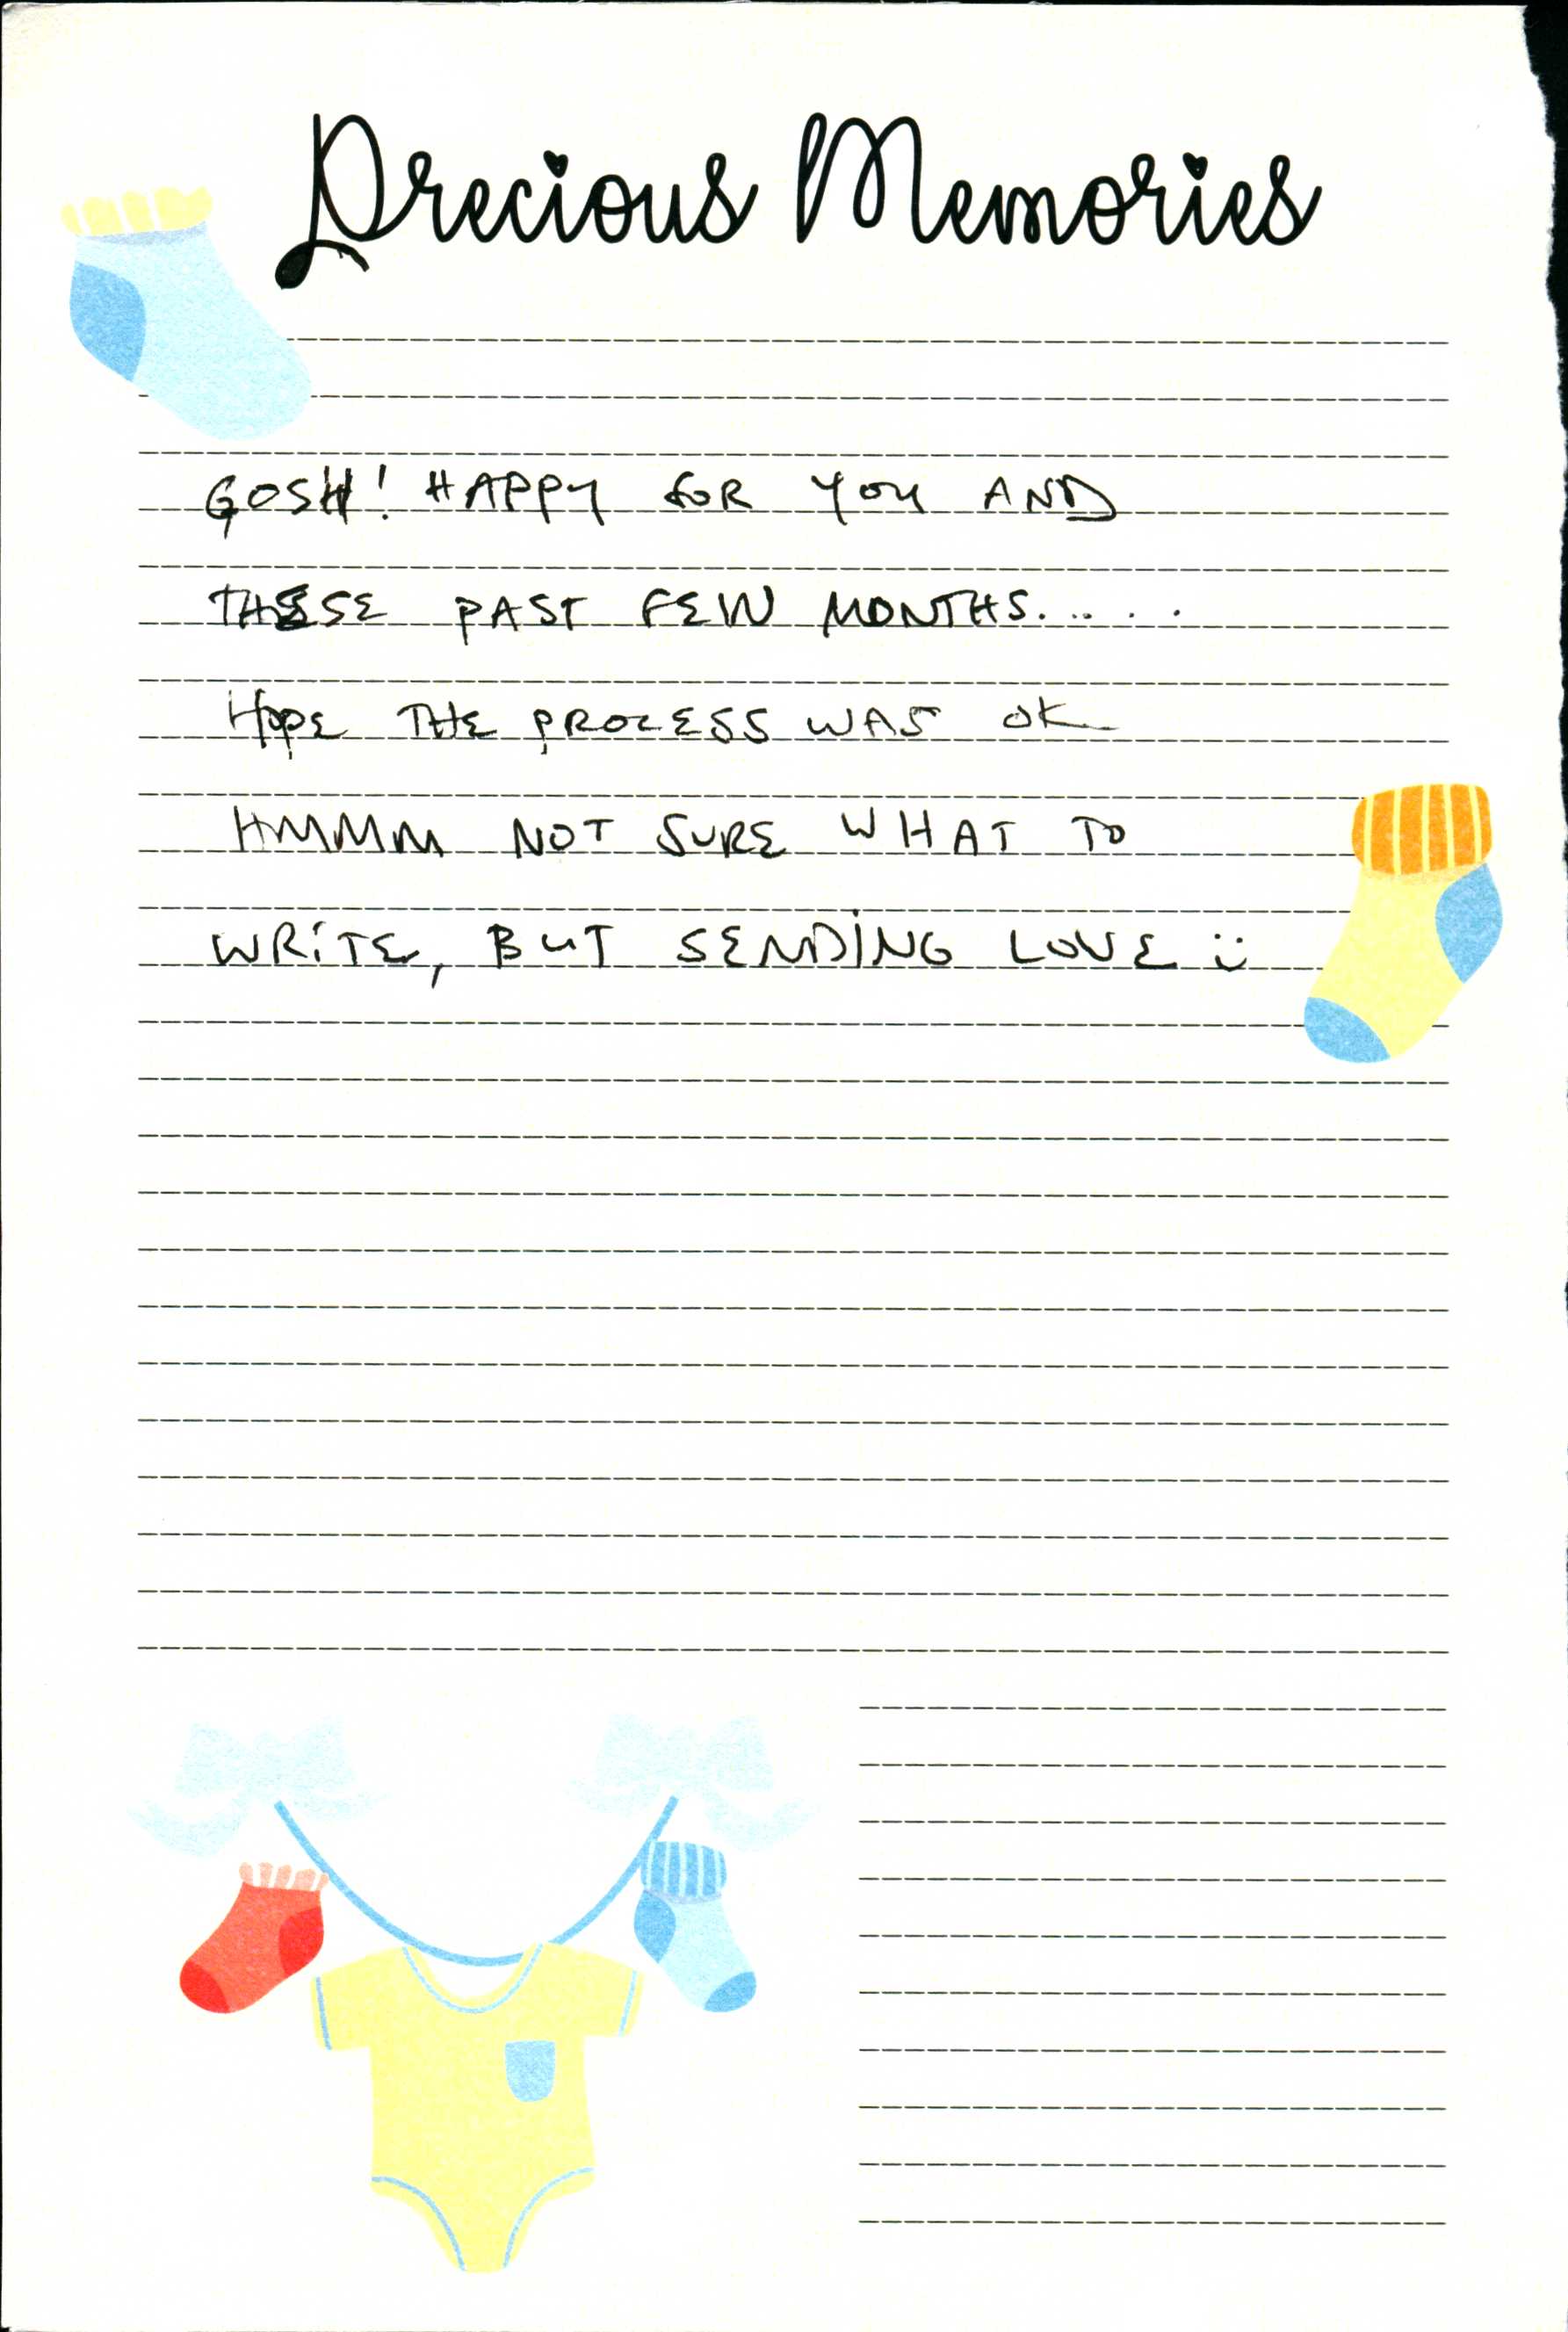 Precious Memories
GOSH! HAPPY FOR YOU AND
THESE PAST FEW MONTHS......
HOPE THE PROCESS WAS OK
HMMM NOT SURE WHAT TO
WRITE, BUT SENDING LOVE :)